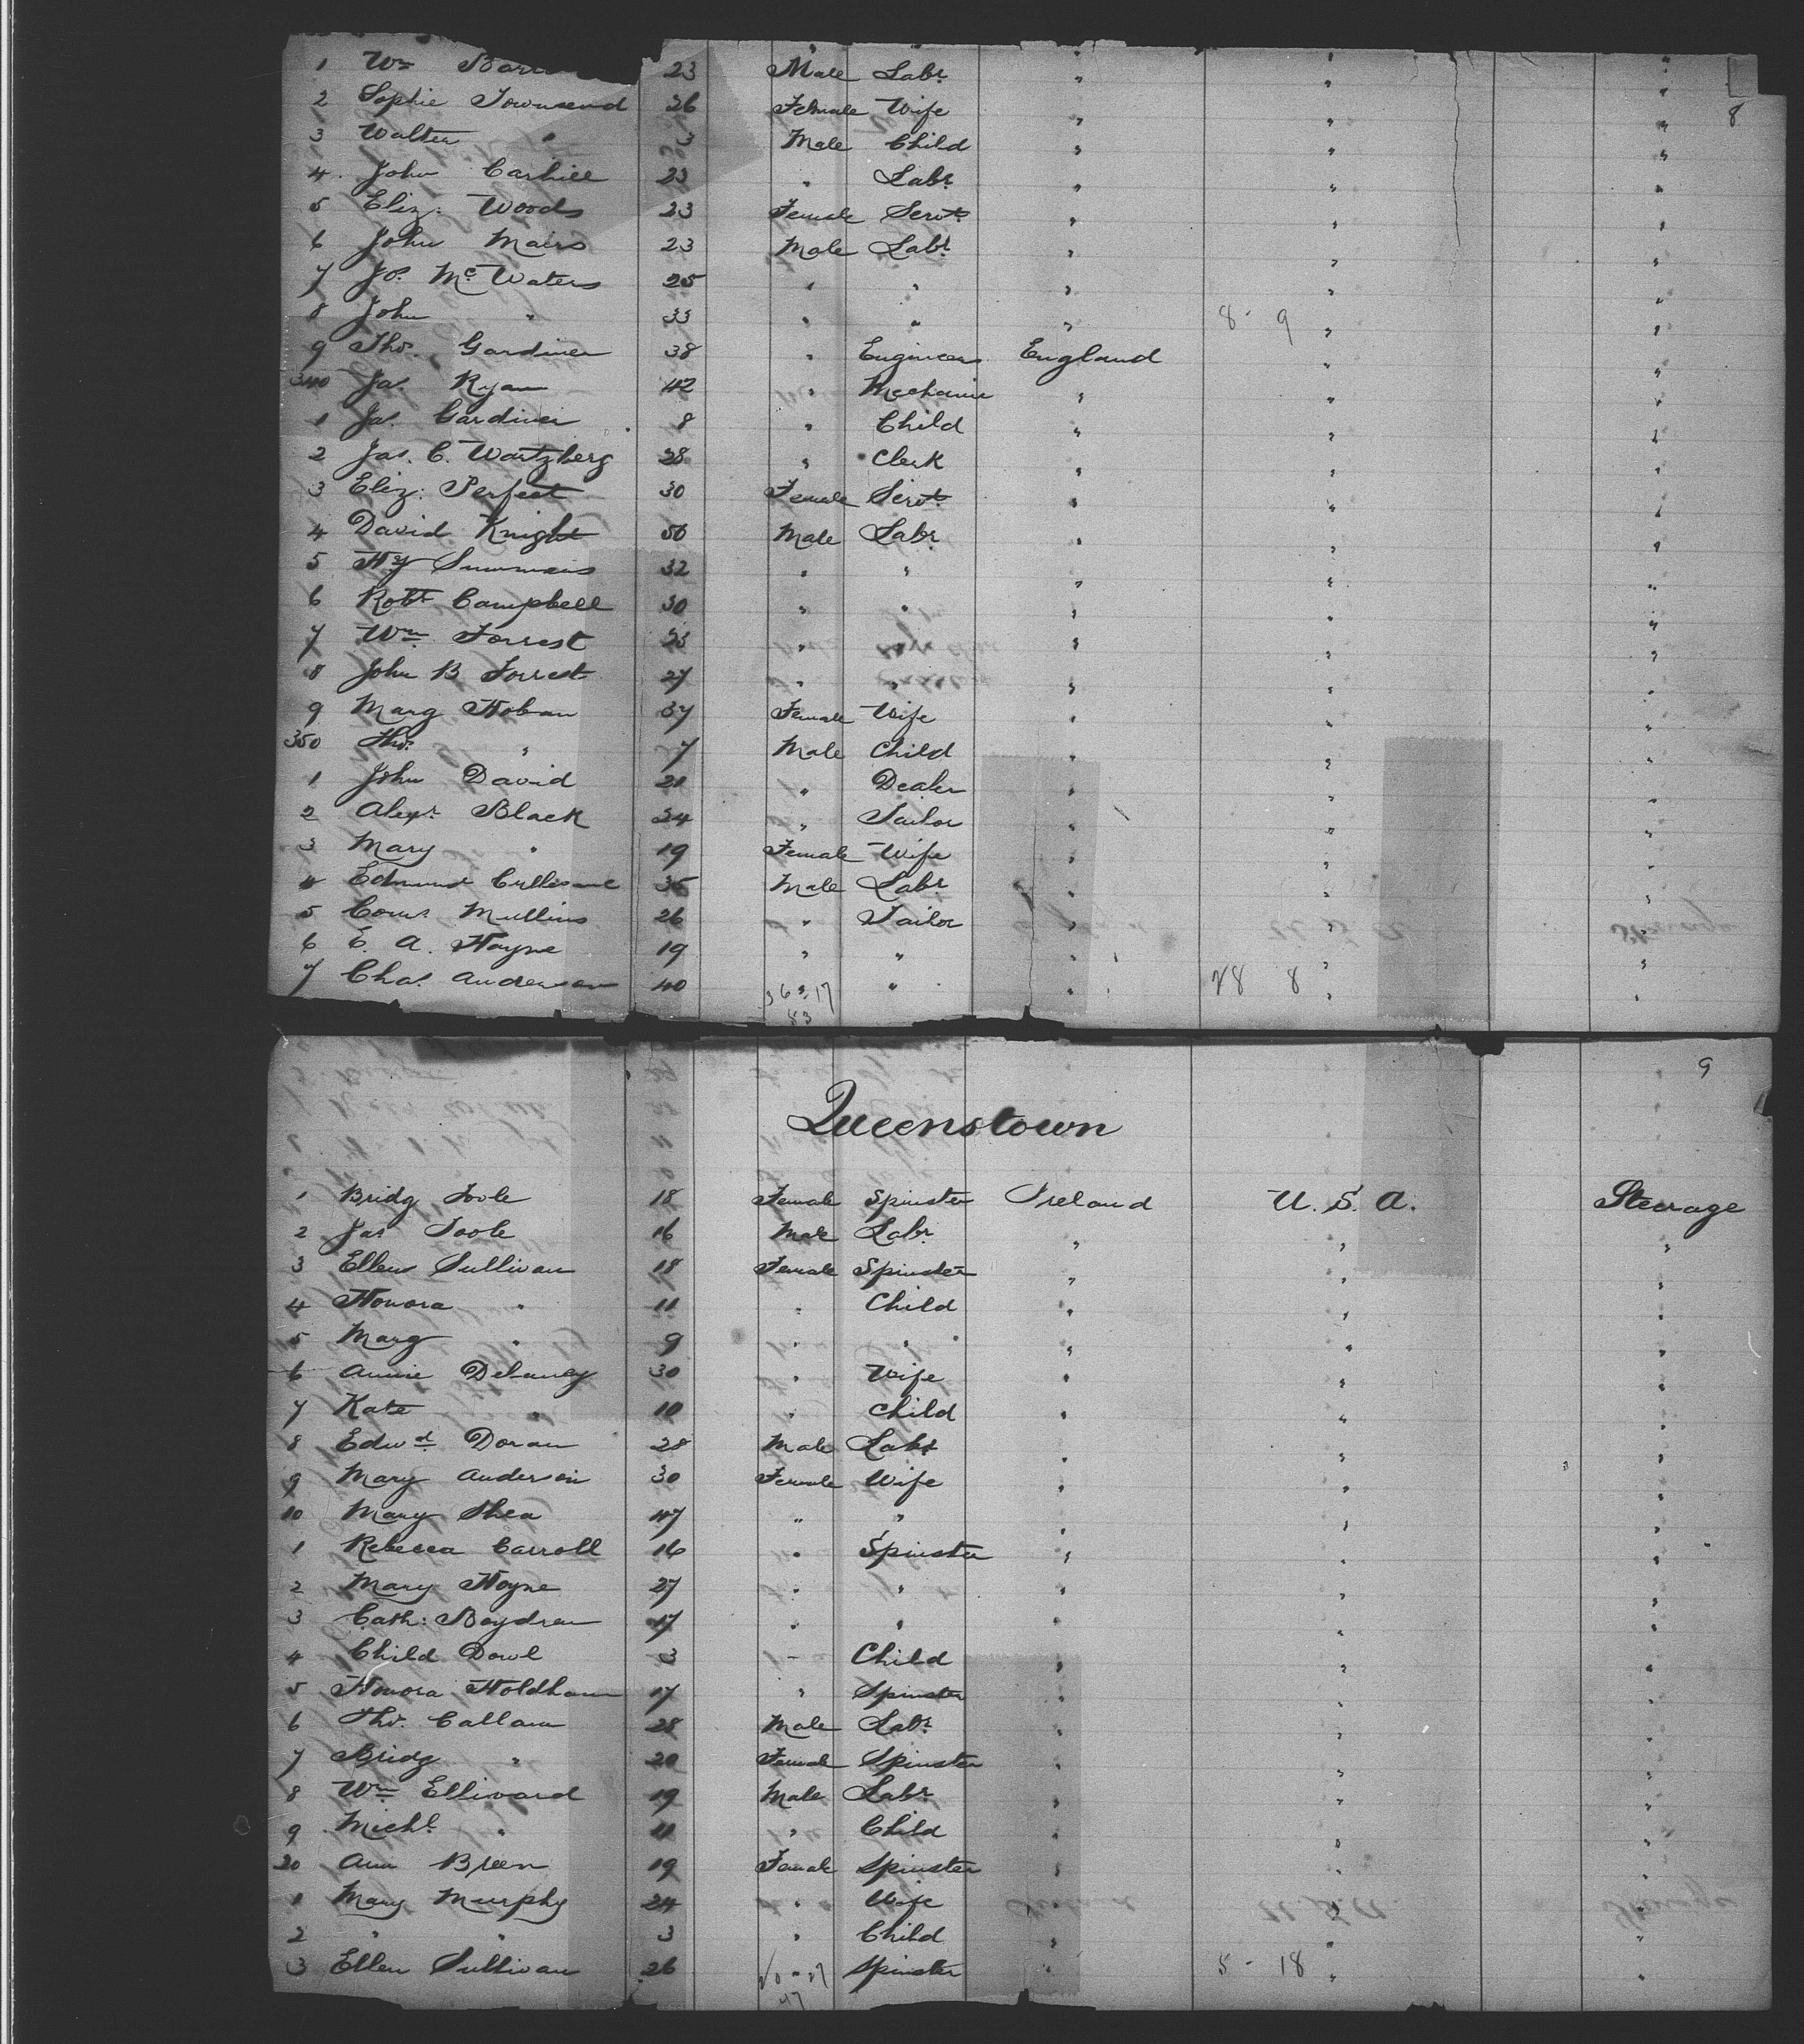 8
1 Wm 23 Male Labr "
2 Sophie Townsend 26 Female Wife " " "
3 Walter " 3 Male Child " " "
4 John Carhill 23 " Labr " " "
5 Eliz: Woods 23 Female Servt " " "
6 John Mairs 23 Male Labr " " "
7 Jos. McWaters 25 " " " " "
8 John " 33 " " " 8 - 9 " "
9 Thos. Gardiner 38 " Engineer England " "
340 Jas. Ryan 42 " Mechanic " " "
1 Jas. Gardiner 8 " Child " " "
2 Jas. C. Wartzberg 28 " Clerk " " "
3 Eliz: Perfect 30 Female Servt " " "
4 David Knight 50 Male Labr " " "
5 Hy Summers 32 " " " " "
6 Robt Campbell 30 " " " " "
7 Wm Forrest 23 " " " " "
8 John B Forrest 27 " " " " "
9 Marg Hoban 37 Female Wife " " "
350 Thos. " 7 Male Child " " "
1 John David 21 " Dealer " " "
2 Alexr. Black 24 " Tailor " " "
3 Mary " 19 Female Wife " " "
4 Edmund 35 Male Labr " " "
5 Corns. Mullins 26 " Tailor " " "
6 E. A. Hayne 19 " " " " "
7 Chas. Anderson 40 " " " 28 8 " "
36 = 17
53
9
Queenstown
1 Bridg Toole 18 Female Spinster Ireland U. S. A. Steerage
2 Jas Toole 16 Male Labr. " " "
3 Ellen Sullivan 18 Female Spinster " " "
4 Honora " 11 " Child " " "
5 Marg " 9 " " " " "
6 Annie Delaney 30 " Wife " " "
7 Kate " 10 " Child " " "
8 Edwd Doran 28 Male Labr " " "
9 Mary Anderson 30 Female Wife " " "
10 Mary Shea 47 " " " " "
1 Rebecca Carroll 16 " Spinster " " "
2 Mary Hoyne 27 " " " " "
3 Cath: Boydran 17 " " " " "
4 Child Dowl 3 " Child " " "
5 Honora Holdham 17 " Spinster " " "
6 Thos. Callam 28 Male Labr. " " "
7 Bridg " 20 Female Spinster " " "
8 Wm Ellivard 19 Male Labr " " "
9 Michl. " 11 " Child " " "
20 Ann Breen 19 Female Spinster " " "
1 Mary Murphy 24 " Wife " "
2 " " 3 " Child " " "
3 Ellen Sullivan 26 Spinster " 5 - 18 " "
20 = 27
47